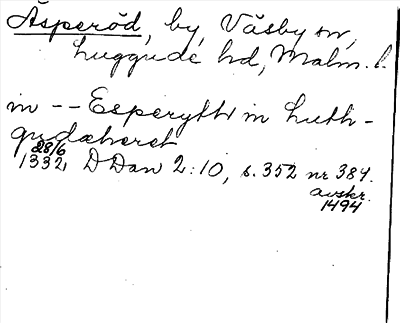 Äsperöd, by, Väsby sn,
Luggude hd, Malm. l.
in -- Esperythh in Luth-
gudæheret
28/6
1332, D Dan 2:10, s. 352 nr 384.
avskr.
1494